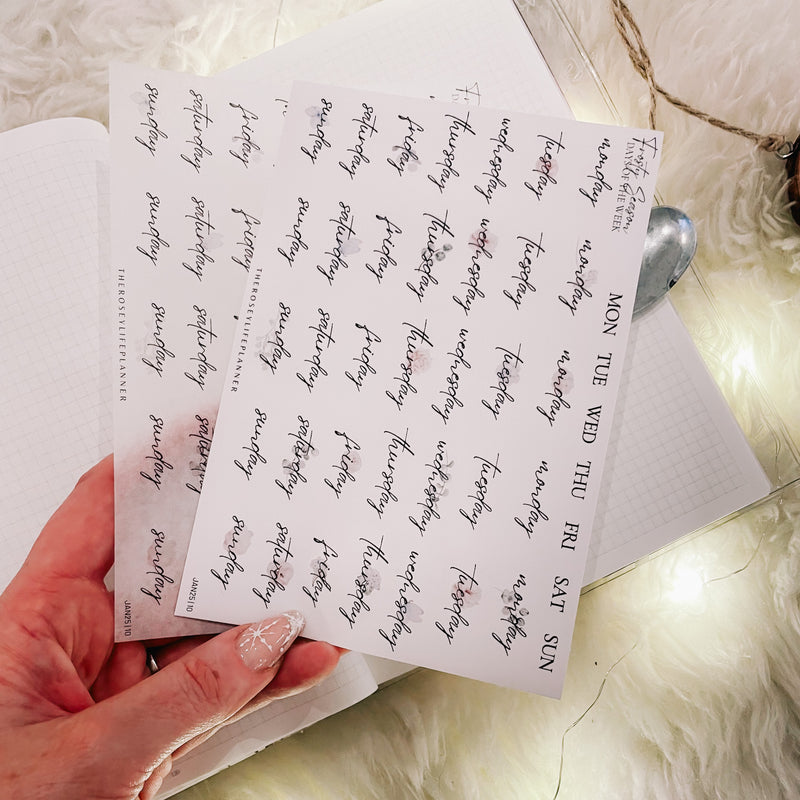 Frosty Season
DAYS OF THE WEEK
MON TUE WED THU FRI SAT SUN
monday monday monday monday monday
tuesday tuesday tuesday tuesday tuesday
wednesday wednesday wednesday wednesday wednesday
thursday thursday thursday thursday thursday
friday friday friday friday friday
saturday saturday saturday saturday saturday
sunday sunday sunday sunday sunday
THEROSEYLIFEPLANNER
JAN25 | 10
friday friday
saturday saturday saturday saturday
sunday sunday sunday sunday sunday
THEROSEYLIFEPLANNER
JAN25 | 10